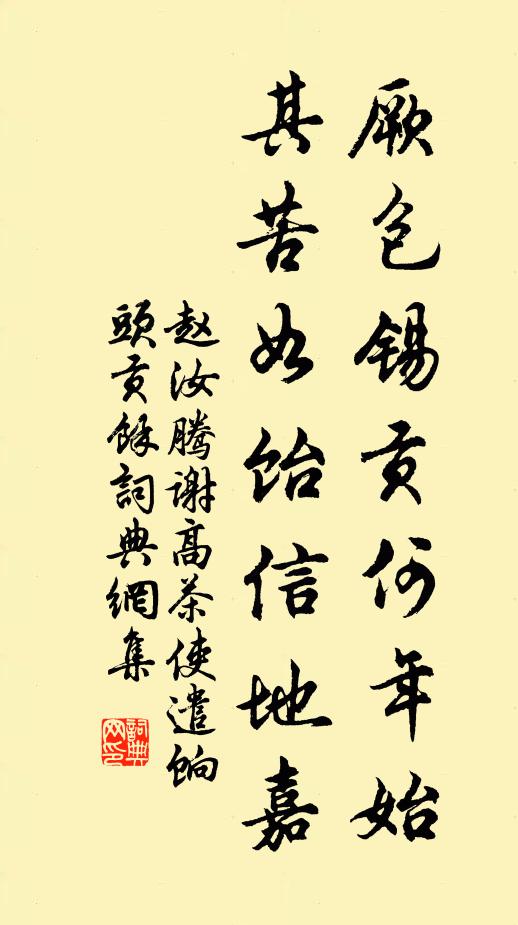 厥包锡贡何年始
其苦如饴信地嘉
赵汝腾谢高茶使遣饷
头贡馀詞典網集
詞典
网印